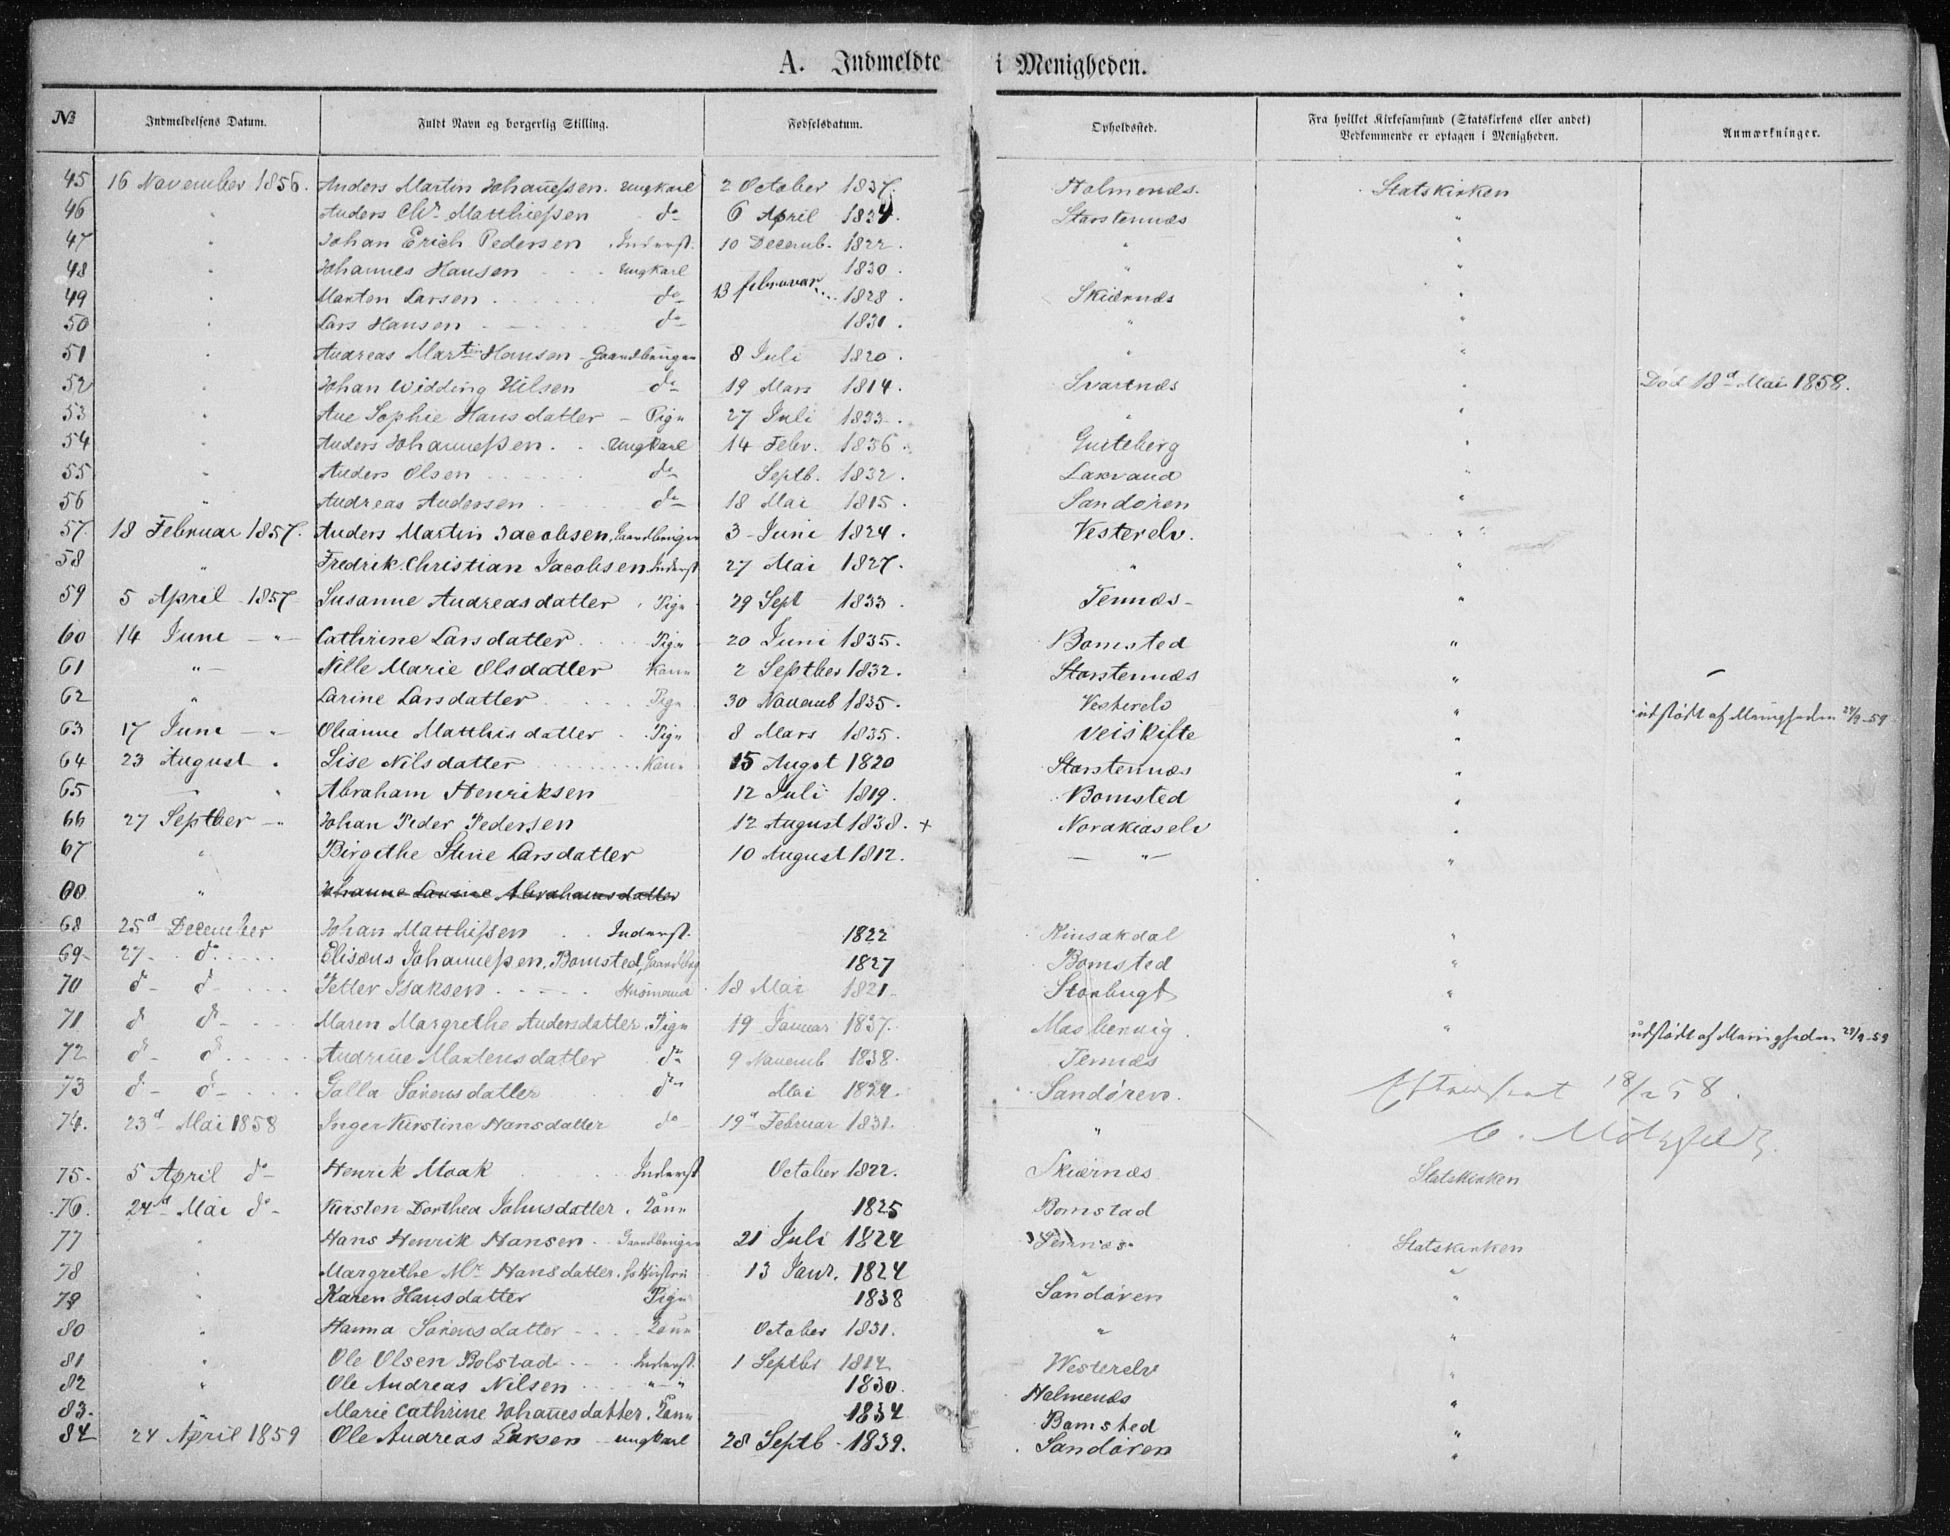 A. Indmeldte i Menigheden.
№ Indmeldelsens Datum. Fuldt Navn og borgerlig Stilling. Fødselsdatum. Opholdssted. Fra hvilket Kirkesamfund (Statskirkens eller andet) Vedkommende er optagen i Menigheden. Anmærkninger.
45 16 November 1856. Anders Martin Johaneßen. Ungkarl 2 October 1837. Holmenæs. Statskirken
46 " Anders Chr. Matthießen do 6 April 1834. Storstennæs "
47 " Johan Erich Pedersen Inderst. 10 Decemb. 1822. " "
48 " Johannes Hansen Ungkarl 1830. " "
49 " Marten Larsen do 13 februar 1828. Skiærnæs "
50 " Lars Hansen do 1831. " "
51 " Andreas Martin Hansen Gaardbruger 8 Juli 1820. " "
52 " Johan Widding Nilsen do 19 Mars 1814. Svartnæs " Død 18d Mai 1858.
53 " Ane Sophie Hansdatter Pige 27 Juli 1833. " "
54 " Anders Johanneßen. Ungkarl 14 Febr. 1836. "
55 " Anders Olsen do Septb. 1832. Laxvand "
56 " Andreas Andersen do 18 Mai 1815. Sandøren "
57. 18 Februar 1857. Anders Martin Jacobsen, Gaardbruger 3 Juni 1824. Vesterelv. "
58 " Fredrik Christian Jacobsen Inderst 27 Mai 1827. " "
59 5 April 1857 Susanne Andreasdatter Pige 29 Sept 1833. Tennæs "
60 14 Juni " Cathrine Larsdatter Pige 20 Juni 1835. Bomsted "
61 " Nille Marie Olsdatter Kone 2 Septber 1832. Storstennæs "
62 " Larine Larsdatter Pige 30 Novemb 1835. Vesterelv "
63 17 Juni " Olianne Matthisdatter Pige 8 Mars 1835. Veiskifte " udstødt af Menigheden 29/9-59
64 23 August " Lise Nilsdatter Kone 15 Augst 1820 Storstennæs "
65 " Abraham Henriksen 12 Juli 1819. Bomsted "
66 27 Septber " Johan Peder Pedersen 12 August 1838. + Nordkiaselv "
67 " Birgithe Stine Larsdatter 10 August 1812. " "
00 " Johanne Laurine Abrahamsdatter
68 25d December Johan Matthißen Inderst. 1822 "
69 27 do Elisæus Johanneßen Bomsted, Gaardbrug 1827 Bomsted "
70 d d Petter Isaksen Husmand 18 Mai 1821 Storbugt "
71 d d Maren Margrethe Andersdatter Pige 19 Januar 1837. " udstødt af Menigheden 29/9-59
72 d d Andrine Martensdatter do 9 Novemb 1838. Tennæs
73 d d Galla Sørensdatter do Mai 1824. Sandøren. Efterseet 18/2 58.
74. 23d Mai 1858 Inger Kirstine Hansdatter do 19d Februar 1831. "
75. 5 April do Henrik Moak Inderst October 1822. Skiærnæs Statskirken
76. 24d Mai do Kirsten Dorthea Johnsdatter. Kone 1825 Bomstad
77 " Hans Henrik Hansen Gaardbruger 21 Juli 1824 Tennæs Statskirken
78 Margrethe Mr. Hansdatter 13 Janr. 1824 " "
79 " Karen Hansdatter Pige 1838 Sandøren "
80 " Hanna Sørensdatter Kone October 1831. " "
81 " Ole Olsen Bolstad Inderst. 1 Septbr 1814 Westerelv "
82 " Ole Andreas Nilsen " 1830. Holmenæs "
83. Marie Cathrine Johanesdatter. Kone 1834 Bomsted "
84 24 April 1859 Ole Andreas Larsen ungkarl 28 Septb 1839. Sandøren "